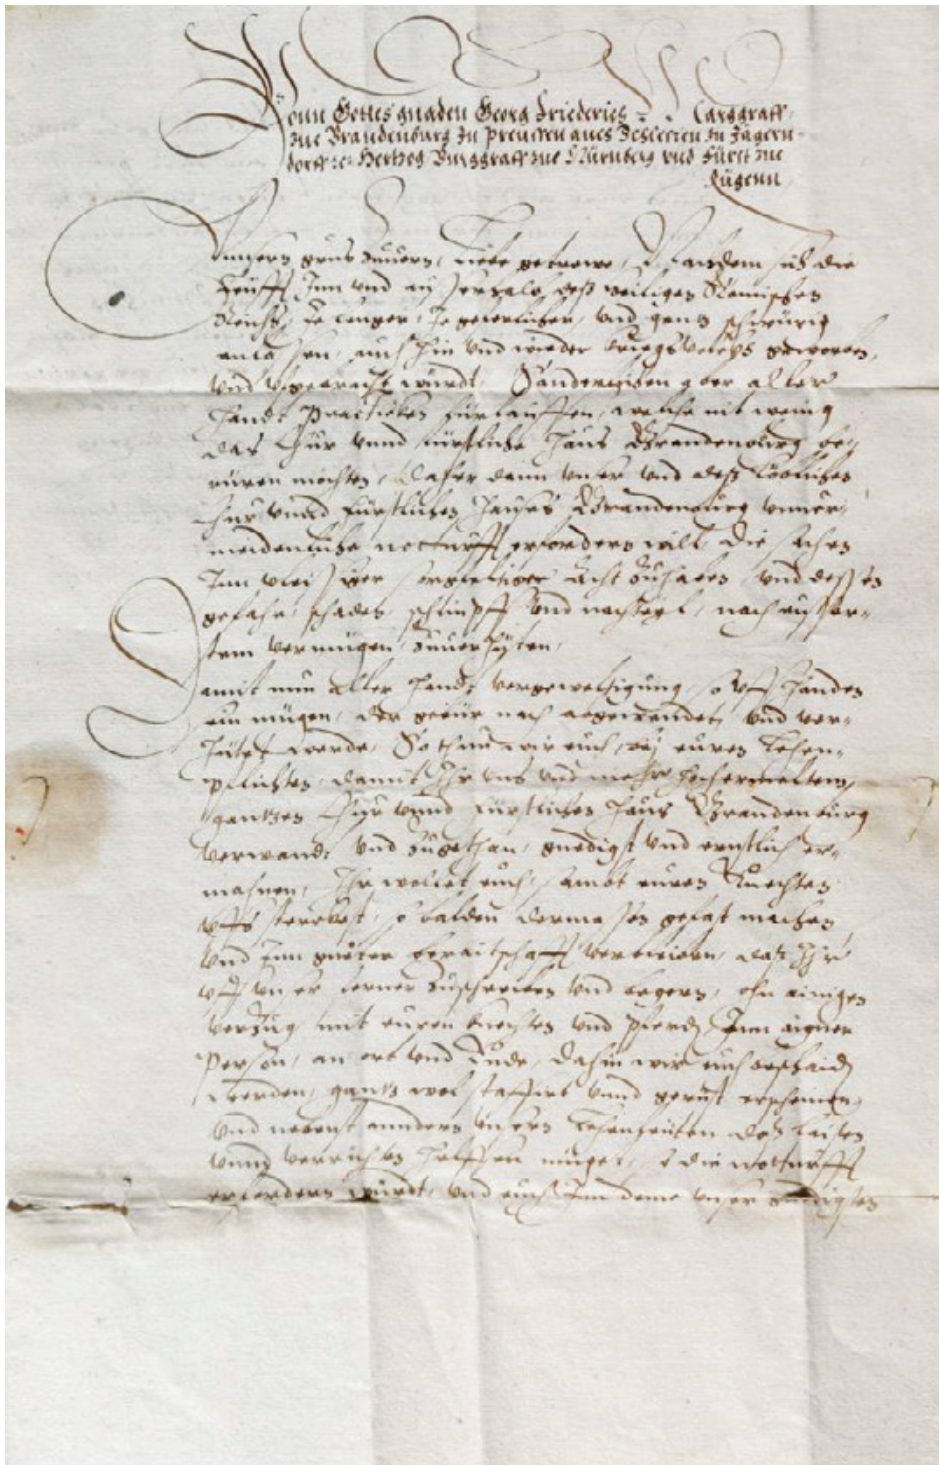 Vonn Gottes gnaden Georg Friederich Marggraff
zue Brandenburg In Preussen auch Schlesien zu Jägern-
dorff ꝛc Hertzog Burggraff zue Nürnberg vnd Fürst zue
Rügenn,
Vnnsern grus zuuorn, Liebe getrewe, Nachdem sich die
Leufft Inn vnd ausserhalb deß heiligen Römischen
Reichs, Je lenger, Je geuerlicher, vnd gantz schwürig
anlassen, auch hin vnd wieder kriegsvolckh geworben,
vnd vfgebracht würdt, Sonderlichen aber aller
handt Practickhen fürlauffen, welche nit wenig
das Chur vnnd fürstliche Haus Brandenburg be-
rüren möchten, Daher dann vnser vnd deß Löblichen
Chur vnnd Fürstlichen Hauses Brandenburg vnuer-
meidenliche notturfft erfordern will, Die sachen
Inn vleissiger sorgfeltiger Acht Zuhaben, vnd dessen
gefahr, schaden, schimpff vnd nachtheyl, nach eusser-
stem vermügen, Zuuerhüten,
Damit nun aller handt vergeweltigung, so vff handen
sein mügen, der gebür nach abgewendet, vnd ver-
hütet werde, So thun wir euch, bey euren Lehen-
pflichten, damit Ihr vns vnd mehr hochermeltem
gantzen Chur vnnd Fürstlichen Haus Brandenburg
verwandt vnd zugethan, gnedigst vnd ernstlich er-
mahnen, Ihr wollet euch, sambt euren Knechten
vffs sterckhest, so balden dermassen gefast machen,
vnd Inn guter beraitschafft verbleiben, daß Ihr
vff vnser ferner zuschreiben vnd begern, ohn ainigen
verzug, mit euren knechten vnd pferdt, Inn aigner
Person, an ort vnd Ende, dahin wir euch beschaiden
werden, gantz wol staffirt vnnd gerüst erscheinen,
vnd nebenst anndern vnsern Lehenleuten das Laisten
vnnd verrichten helffen müget, so die notturfft
erfordern würdt, vnd euch Inn deme vnser gnedigsten